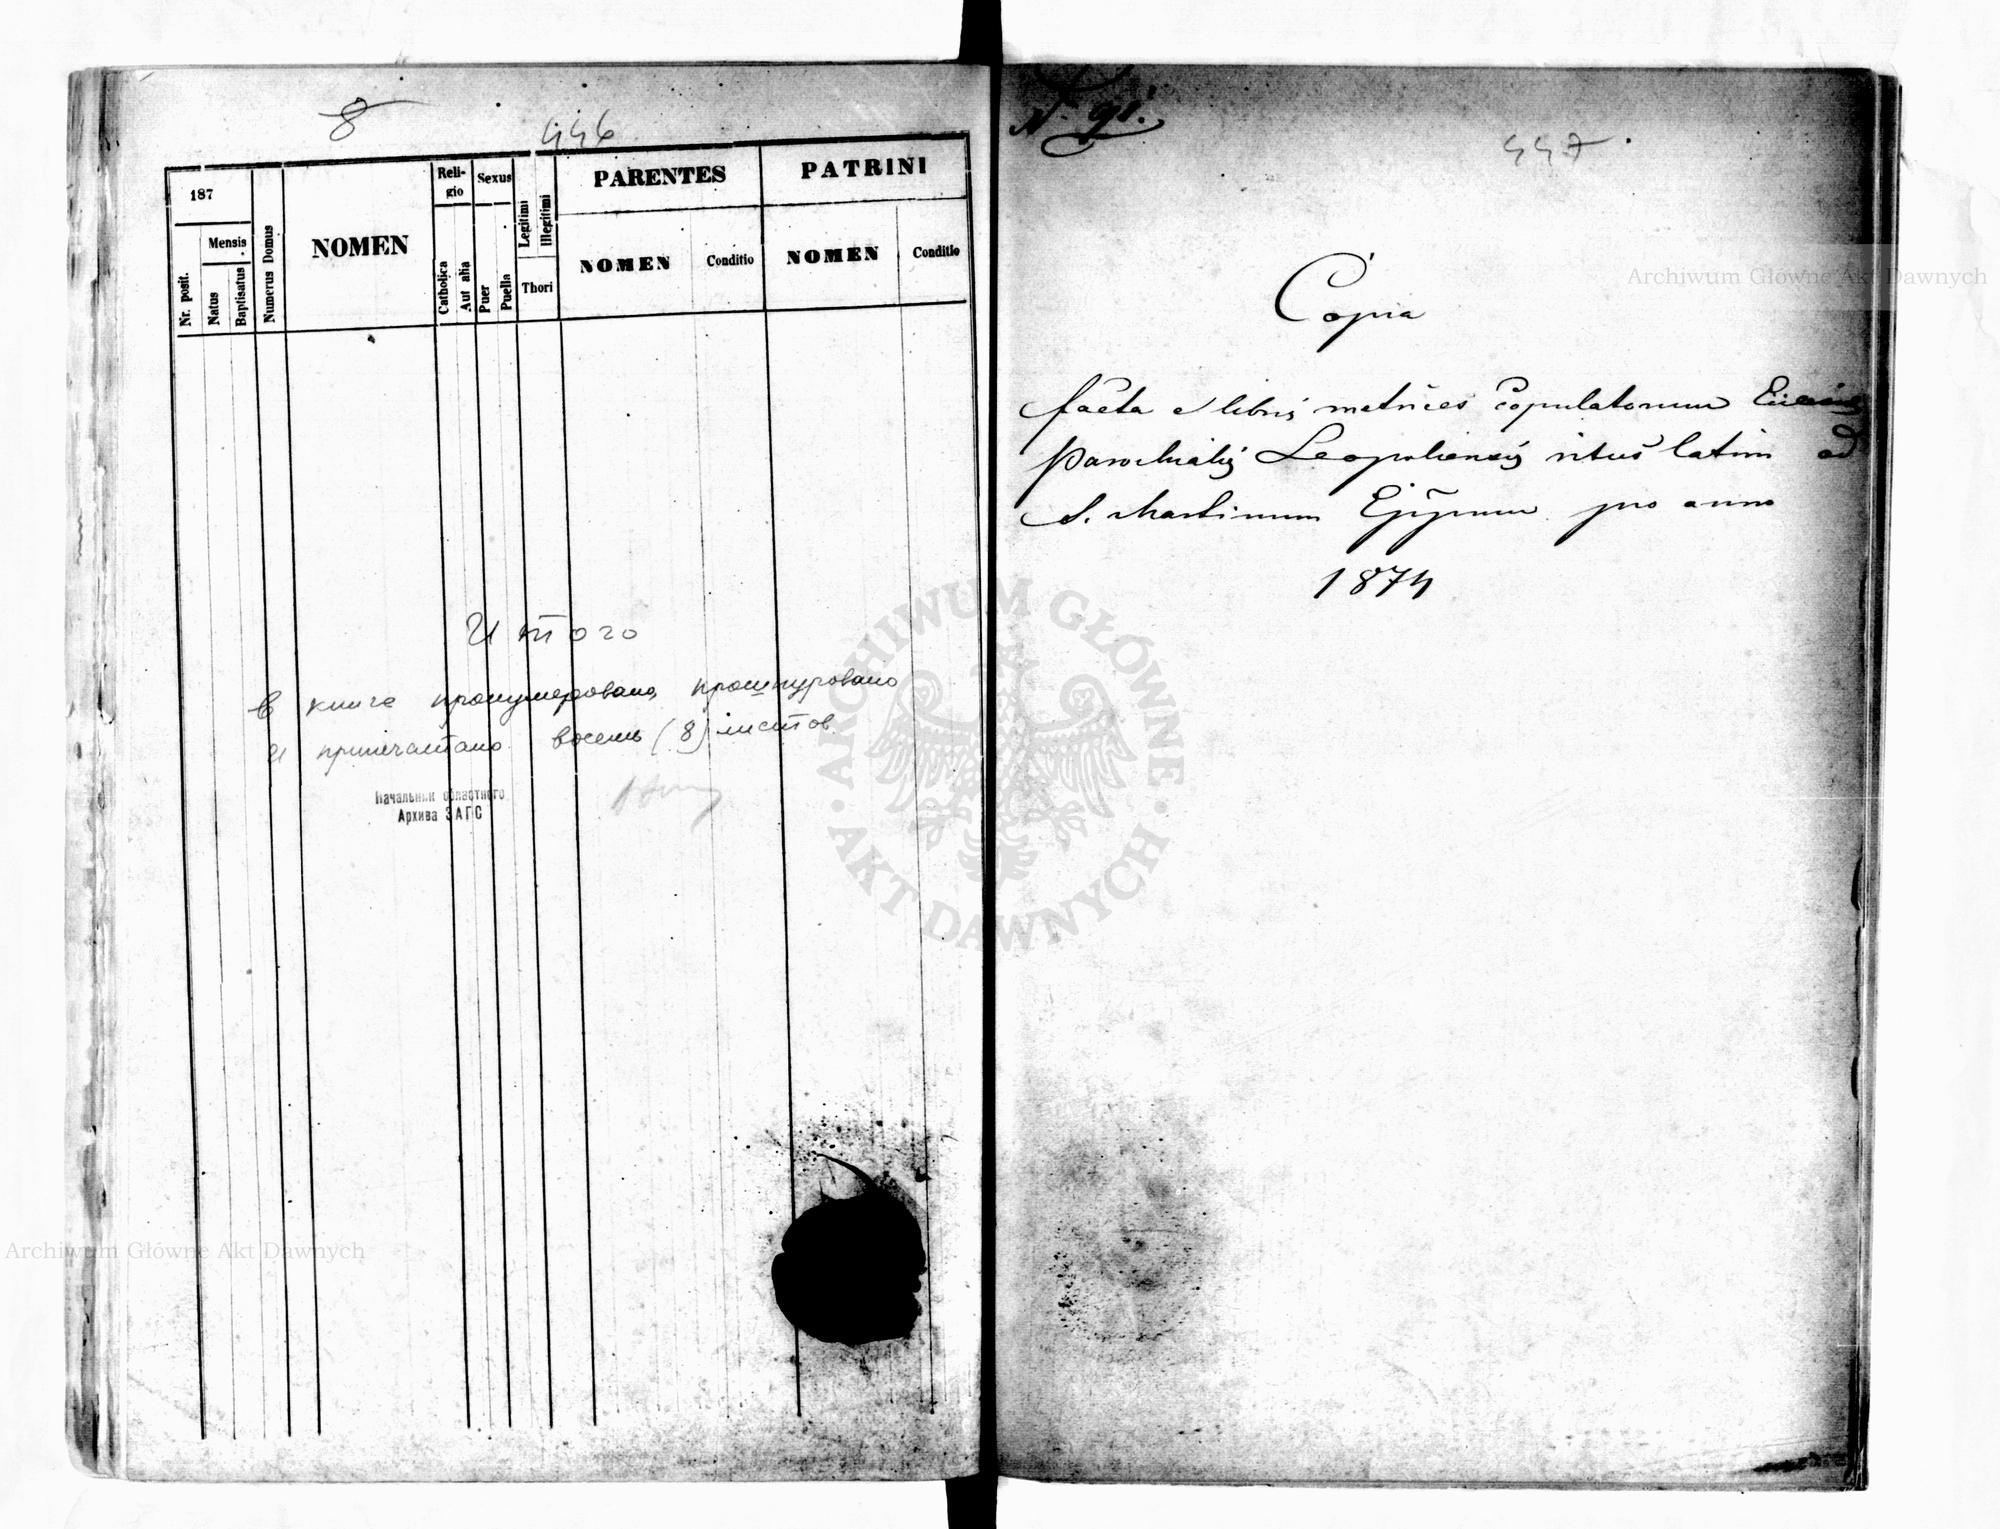 8
446
187
Mensis
Nr. posit.
Natus
Baptisatus
Numerus Domus
NOMEN
Reli-
gio
Catholica
Aut alia
Sexus
Puer
Puella
Legitimi
Illegitimi
Thori
PARENTES
NOMEN
Conditio
PATRINI
NOMEN
Conditio
Итого
В книге пронумеровано, прошнуровано
и припечатано восемь (8) листов
Начальник областного
Архива ЗАГС
N. 91.
447
Copia
facta e libris metrices Copulatorum
Parochialis Leopoliensis ritus latini ad
S. Martinum Eppum pro anno
1874
Archiwum Główne Akt Dawnych
Archiwum Główne Akt Dawnych
ARCHIWUM GŁÓWNE
AKT DAWNYCH